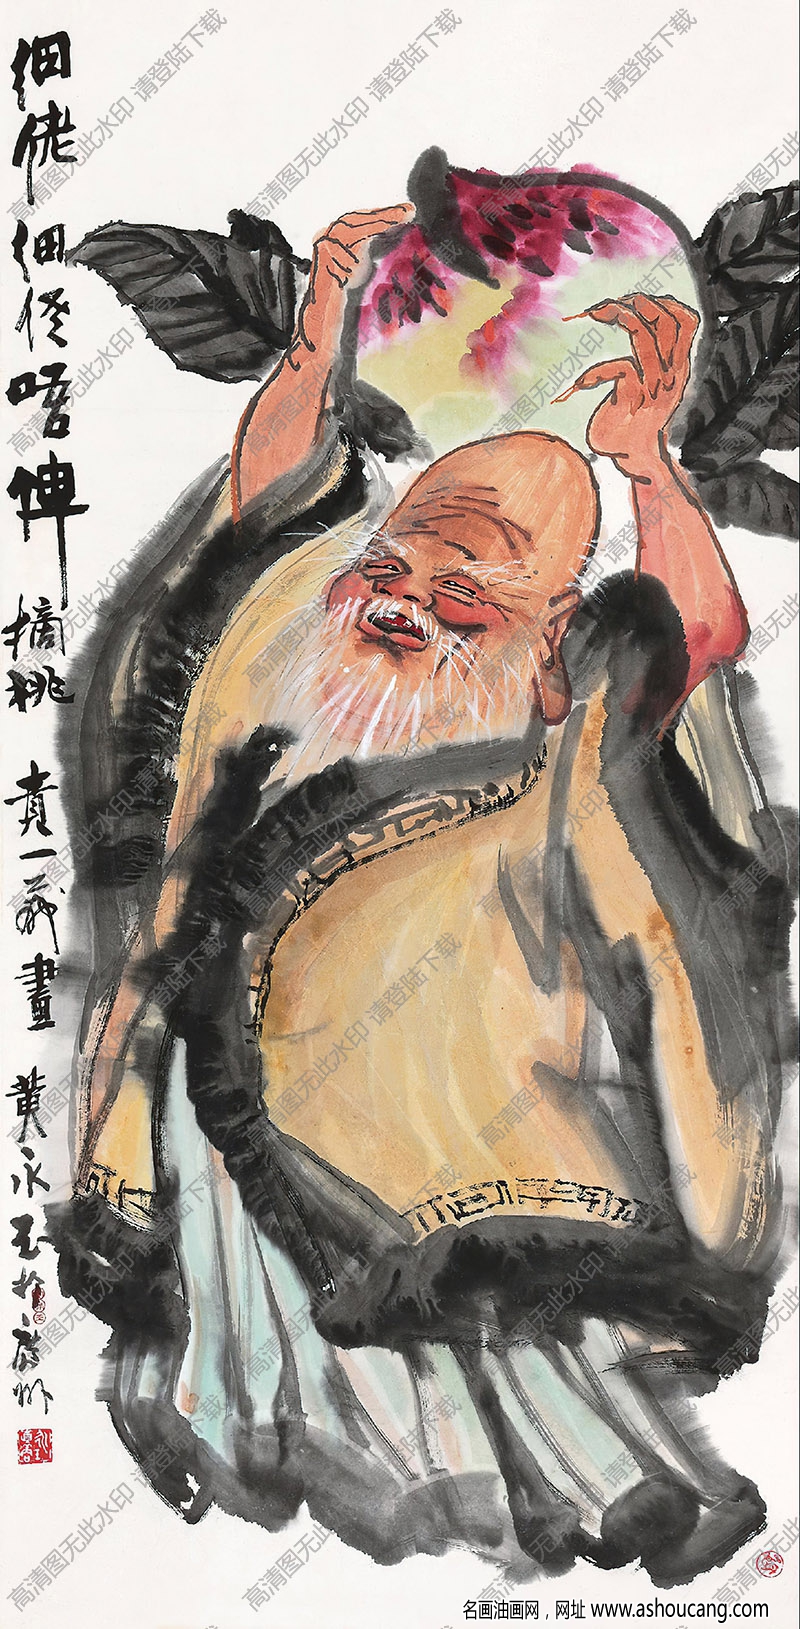 细佬细佬唔俾摘桃 一 畫 黄永玉於廣州
高清图无此水印 请登陆下载
名画油画网，网址 www.ashoucang.com